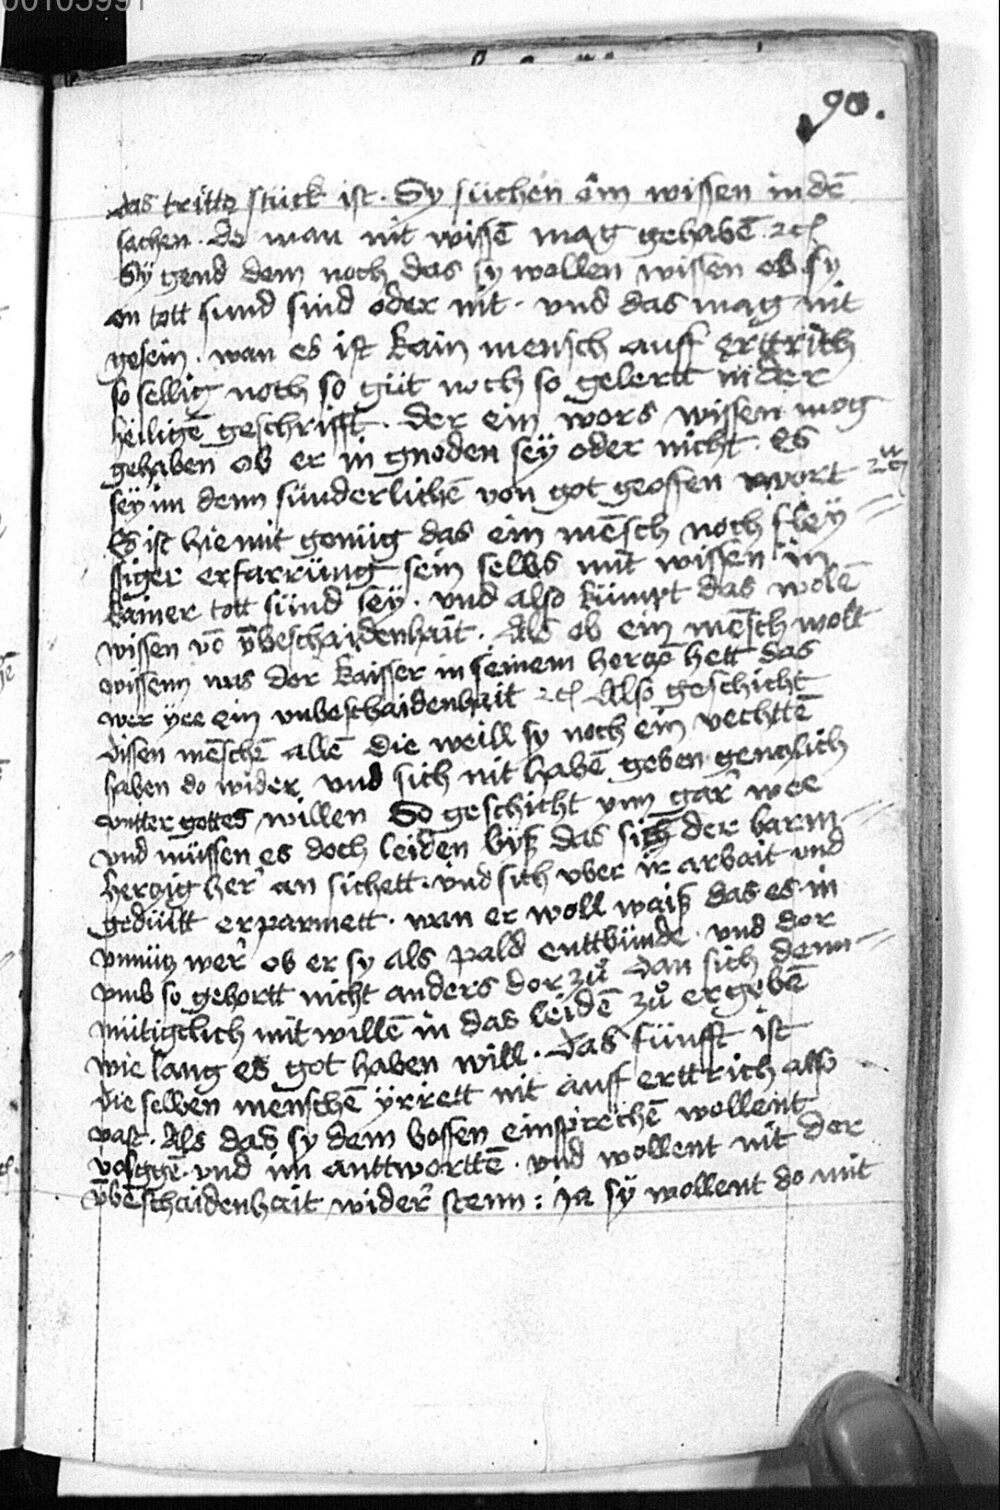 00105991
90.
das tritte stück ist. Sy süchen ein wissen in dē
sachen. do man nit wissē mag gehabē ⁊cͣ
Sy gend dem noch das sy wollen wissen ob sy
on tott sund sind oder nit. vnd das mag nit
gesein. wan es ist kain mensch auff erttrich
so sellig noch so güt noch so gelertt in der
heiligē geschrifft. der ein wors wissen mog
gehaben ob er in gnoden sey oder nicht. Es
sey im denn sünderlichē von got geoffen wort ⁊cͣ
Es ist hie mit genüg das ein mēsch noch fley
ssiger erfarrung sein selbs nüt wissen in
kainer tott sünd sey. vnd also kümpt das wolē
wissen vō v̄beschaidenhait. Als ob ein mēsch wolt
wissenn was der kaisser in seinem hercze hett das
wer ye ein vnbeschaidenhait ⁊cͣ Also geschicht
disen mēschē allē die weill sy noch ein vechttē
haben do wider vnd sich nit habē geben genczlich
vntter gottes willen So geschicht ynn gar wee
vnd müssen es doch leiden byß das sich der barm
herczig her an sichett. vnd sich vber ir arbait vnd
gedültt erparmett. wan er woll waiß das es in
vnnücz wer ob er sy als pald enttbünde. vnd dor
vmb so gehortt nicht anders dor zů dan sich demm
mütigclich mit willē in das leidē zů ergebē
wie lang es got haben will. das fünfft ist
die selben menschē yrrett nit auff erttrich also
vast. Als das sy dem bossen einsprechē wollent
vnd im anttworttē. vnd wollent nit der
v̄beschaidenhait wider stenn: Ja sy wollent do mit